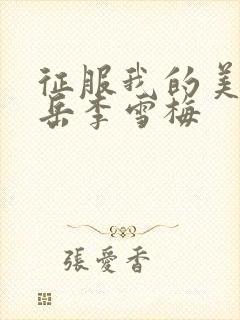 征服我的美
岳李雪梅
張愛香